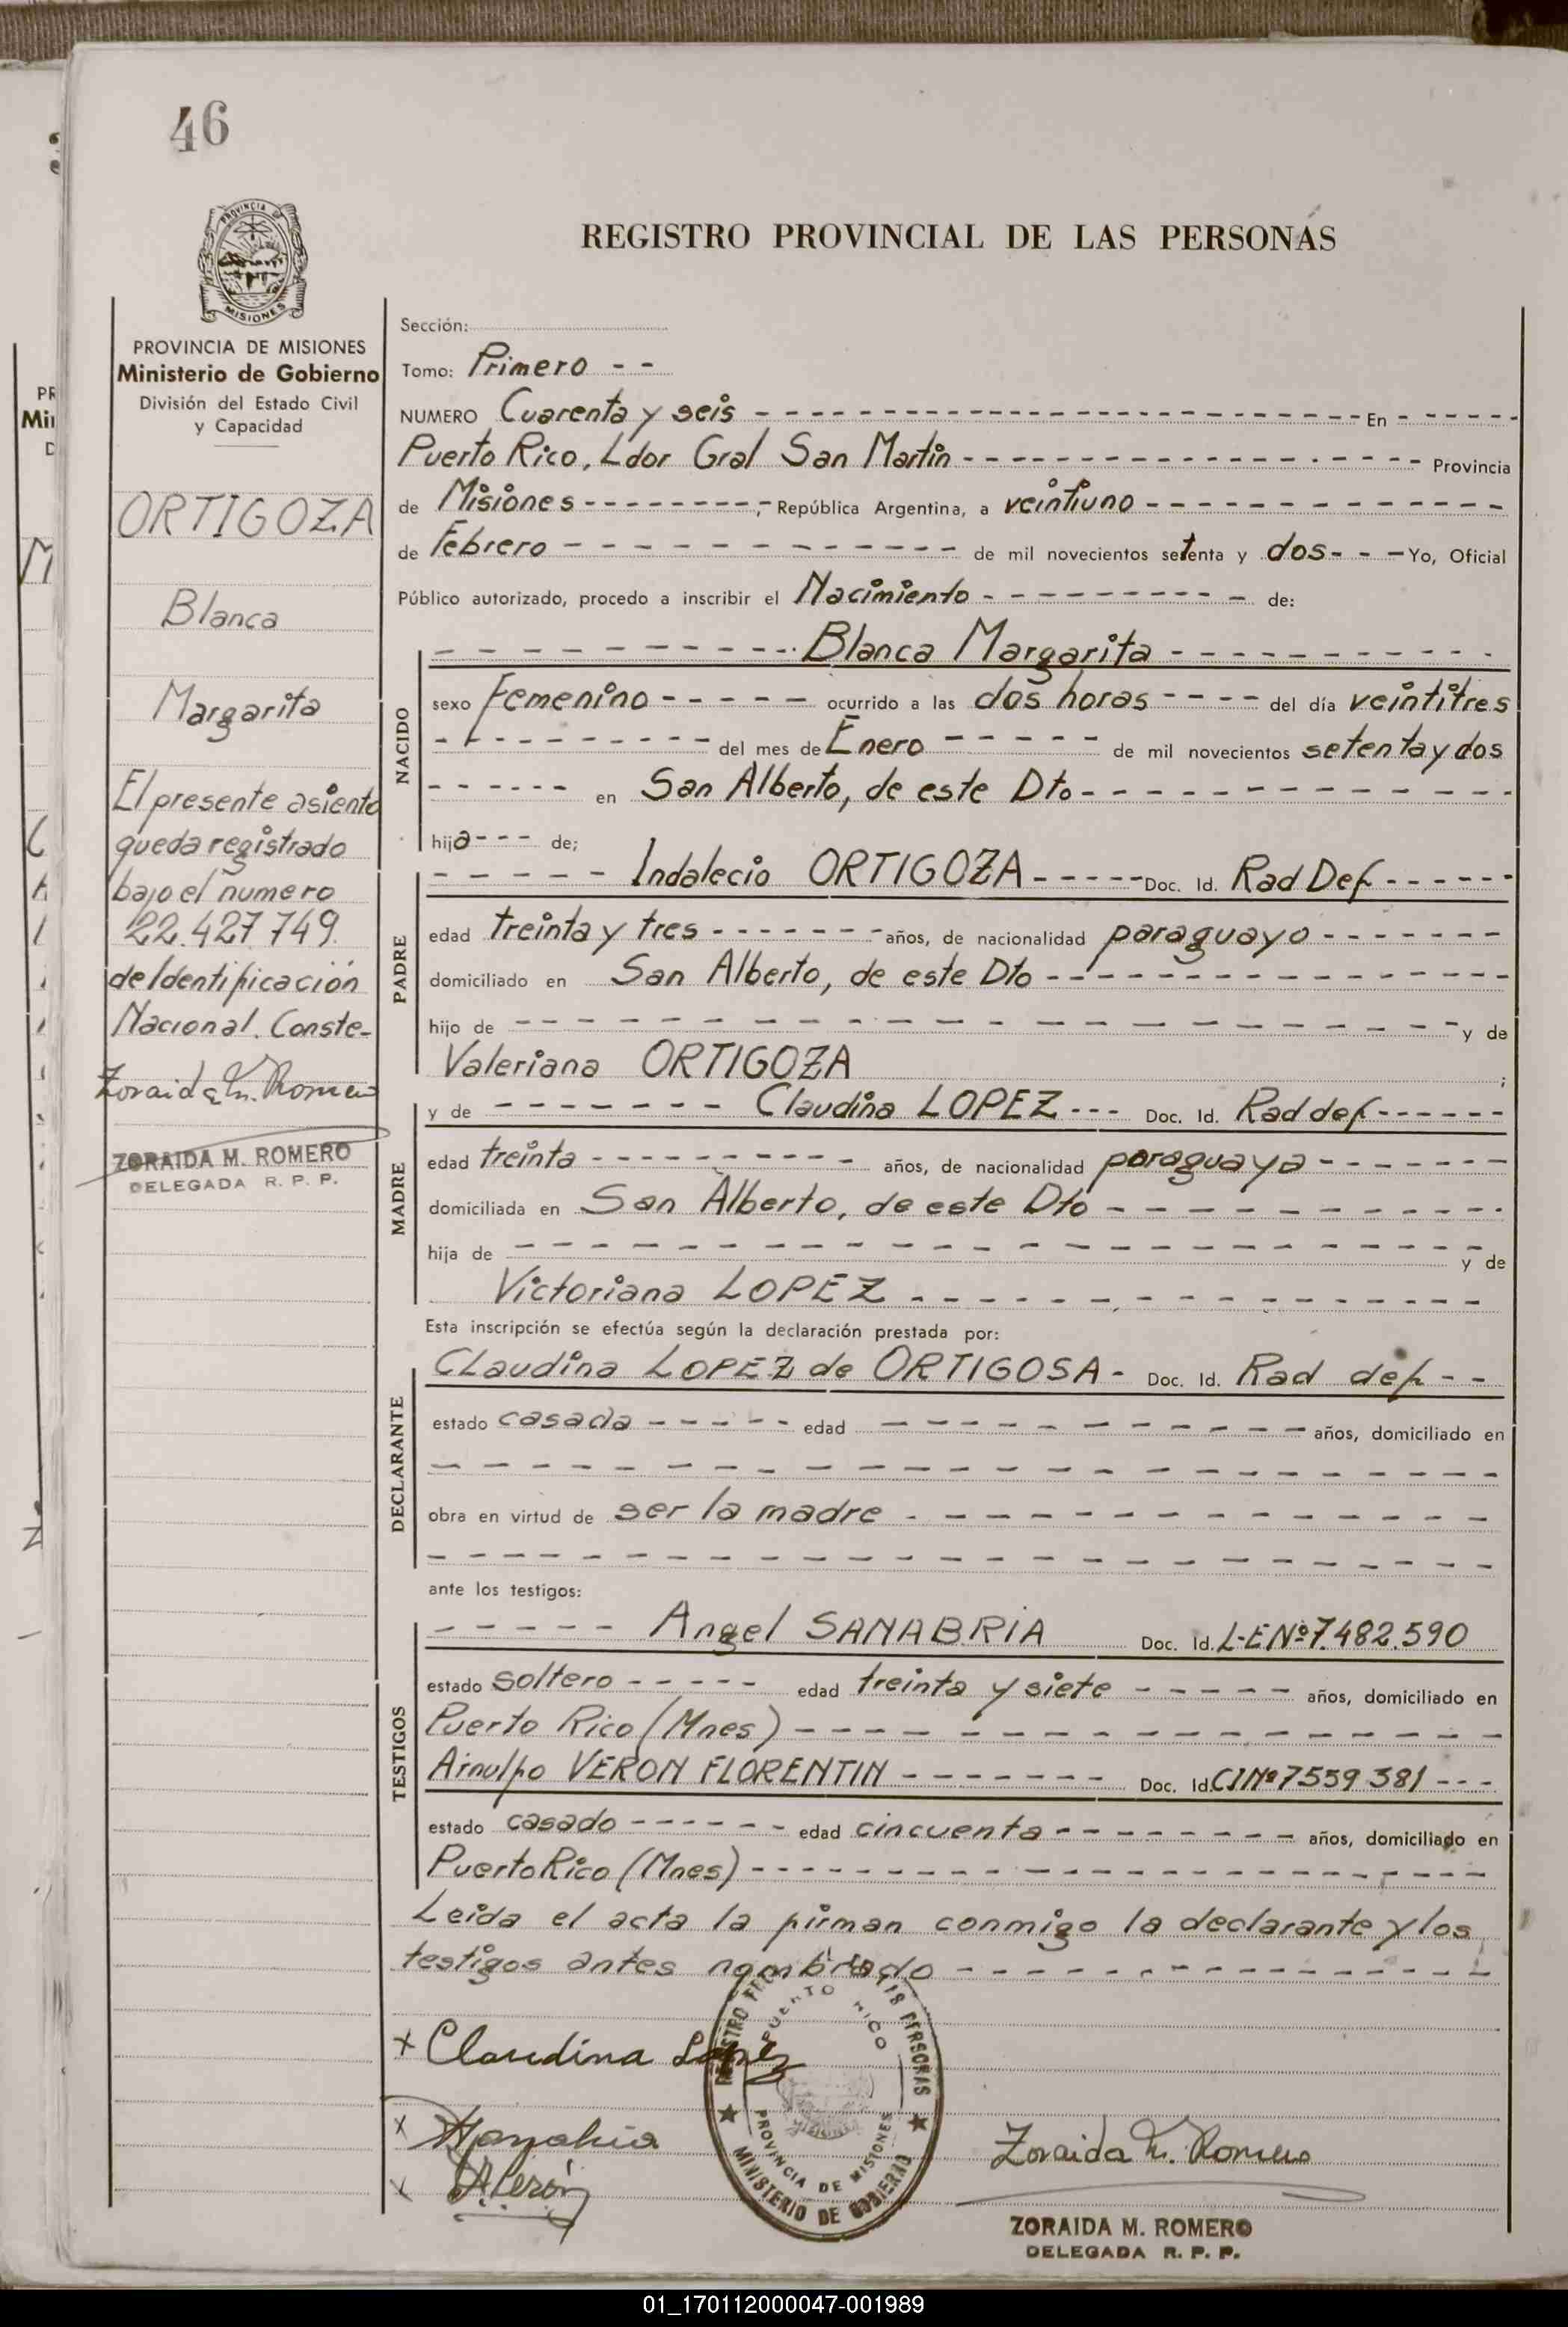 46
PROVINCIA DE
MISIONES
PROVINCIA DE MISIONES
Ministerio de Gobierno
División del Estado Civil
y Capacidad
ORTIGOZA
Blanca
Margarita
El presente asiento
queda registrado
bajo el numero
22.427.749.
de Identificación
Nacional. Conste-
Zoraida M. Romero
ZORAIDA M. ROMERO
DELEGADA R. P. P.
REGISTRO PROVINCIAL DE LAS PERSONAS
Sección:
Tomo: Primero - -
NUMERO Cuarenta y seis - - - En - - -
Puerto Rico, Ldor Gral San Martin - - - Provincia
de Misiones - - -, República Argentina, a veintiuno - - -
de Febrero - - - de mil novecientos setenta y dos - - - Yo, Oficial
Público autorizado, procedo a inscribir el Nacimiento - - - de:
- - - Blanca Margarita - - -
NACIDO
sexo Femenino - - - ocurrido a las dos horas - - - del día veintitres
- - - del mes de Enero - - - de mil novecientos setenta y dos
- - - en San Alberto, de este Dto - - -
hija - - - de;
- - - Indalecio ORTIGOZA - - - Doc. Id. Rad Def - - -
PADRE
edad treinta y tres - - - años, de nacionalidad paraguayo - - -
domiciliado en San Alberto, de este Dto - - -
hijo de - - - y de
Valeriana ORTIGOZA ;
y de - - - Claudina LOPEZ - - - Doc. Id. Rad def - - -
MADRE
edad treinta - - - años, de nacionalidad paraguaya - - -
domiciliada en San Alberto, de este Dto - - -
hija de - - - y de
Victoriana LOPEZ - - -
Esta inscripción se efectúa según la declaración prestada por:
CLaudina LOPEZ de ORTIGOSA - Doc. Id. Rad def - -
DECLARANTE
estado casada - - - edad - - - años, domiciliado en
- - -
obra en virtud de ser la madre - - -
- - -
ante los testigos:
- - - Angel SANABRIA Doc. Id. L-E Nº 7.482.590
TESTIGOS
estado soltero - - - edad treinta y siete - - - años, domiciliado en
Puerto Rico (Mnes) - - -
Arnulfo VERON FLORENTIN - - - Doc. Id. CI Nº 7559 381 - - -
estado casado - - - edad cincuenta - - - años, domiciliado en
Puerto Rico (Mnes) - - -
Leida el acta la firman conmigo la declarante y los
testigos antes nombrado - - -
x Claudina Lopez
x
x
PUERTO RICO
PERSONAS
PROVINCIA DE MISIONES
MINISTERIO DE GOBIERNO
Zoraida M. Romero
ZORAIDA M. ROMERO
DELEGADA R. P. P.
01_170112000047-001989